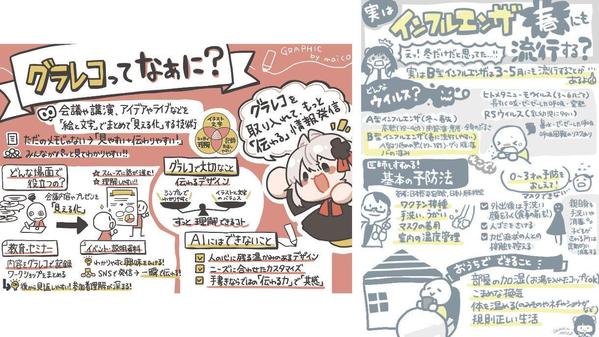 グラレコってなぁに?
GRAPHIC
by maico
会議や講演、アイデアやライブなどを
「絵と文字」でまとめて「見える化」する技術
ただのメモじゃない!「見やすい+伝わりやすい!」
みんながパッと見てわかりやすい!!
イラスト
文字
どんな場面で
役立つの?
スムーズに話が進む!
理解しやすい!
会議内容やプレゼンを
見える化
教育・セミナー
内容をグラレコで記録
ワークショップもまとめる
後から見返しやすい!参加者の理解が深まる!
イベント・説明資料
わかりやすく興味をひける!
SNSで発信→一瞬で伝わる!
グラレコで大切なこと
伝わるデザイン
シンプルで
わかりやすく
イラストと文字
のバランス
ずっと理解できるコト
AIにはできないこと
人の心に残る温かみのあるデザイン
ニーズに合わせたカスタマイズ
手書きならではの「伝わる力」で"共感"
グラレコを
取り入れて、もっと
「伝わる」情報発信!
実は
インフルエンザ 春にも
流行する?
えっ!冬だけだと思ってた…!!
実はB型インフルエンザは3-5月にも流行することがあるよ
どんな
ウイルス?
A型インフルエンザ(冬~春先)
B型インフルエンザ(春に流行しやすい)
ヒトメタニューモウイルス(3~6月ごろ)
RSウイルス
医師もすすめる!
基本の予防法
ワクチン接種
手洗い、うがい
マスクの着用
室内の温度管理
0~3才の予防を
おしえて!
マスクできない
外出後は手洗い
人ゴミをさける
カゼ症状の人との
接触を控える
おうちでできること:
部屋の加湿(お湯を入れたコップでもOK)
こまめな換気
体を温める
規則正しい生活